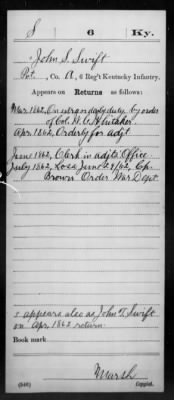 S 6 Ky.
John S. Swift
Pvt., Co. A, 6 Reg't Kentucky Infantry.
Appears on Returns as follows:
Mar. 1862, On extra daily duty by order
of Col. W. C. Whitaker
Apr. 1862, Orderly for adjt.
June 1862, Clerk in adjts Office
July 1862, Loss June 29/62, By
Order War Dept.
s appears also as John T. Swift
on Apr. 1862 return.
Book mark
Marsh
(546) Copyist.